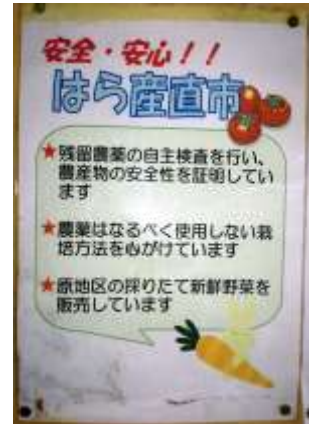 安全・安心!!
はら産直市
★残留農薬の自主検査を行い、
農産物の安全性を証明してい
ます
★農薬はなるべく使用しない栽
培方法を心がけています
★原地区の採りたて新鮮野菜を
販売しています